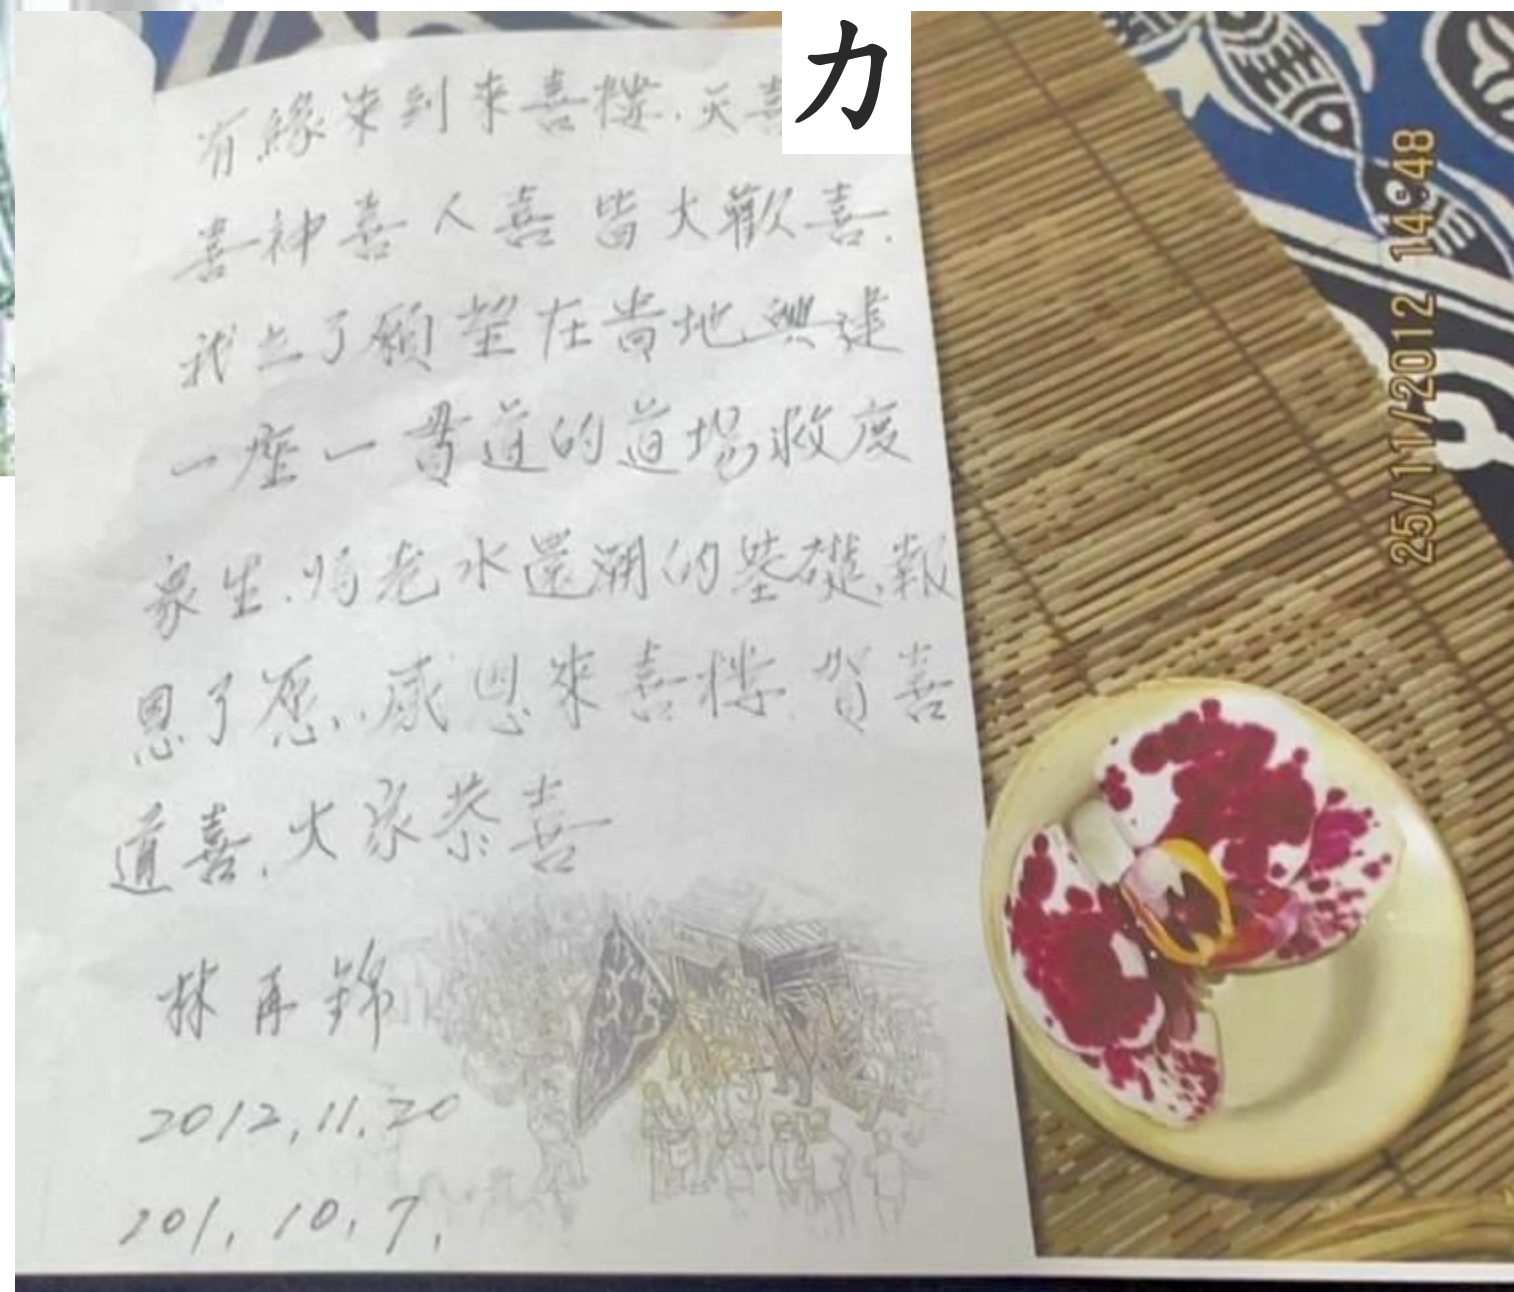 力
有緣來到來喜樓.天喜
喜神喜人喜皆大歡喜.
我立了願望在貴地興建
一座一貫道的道場救度
眾生.為老水還潮的基礎.報
恩了愿..感恩來喜樓.賀喜
道喜.大家恭喜
林再錦
2012.11.20
101.10.7.
25/11/2012 14:48